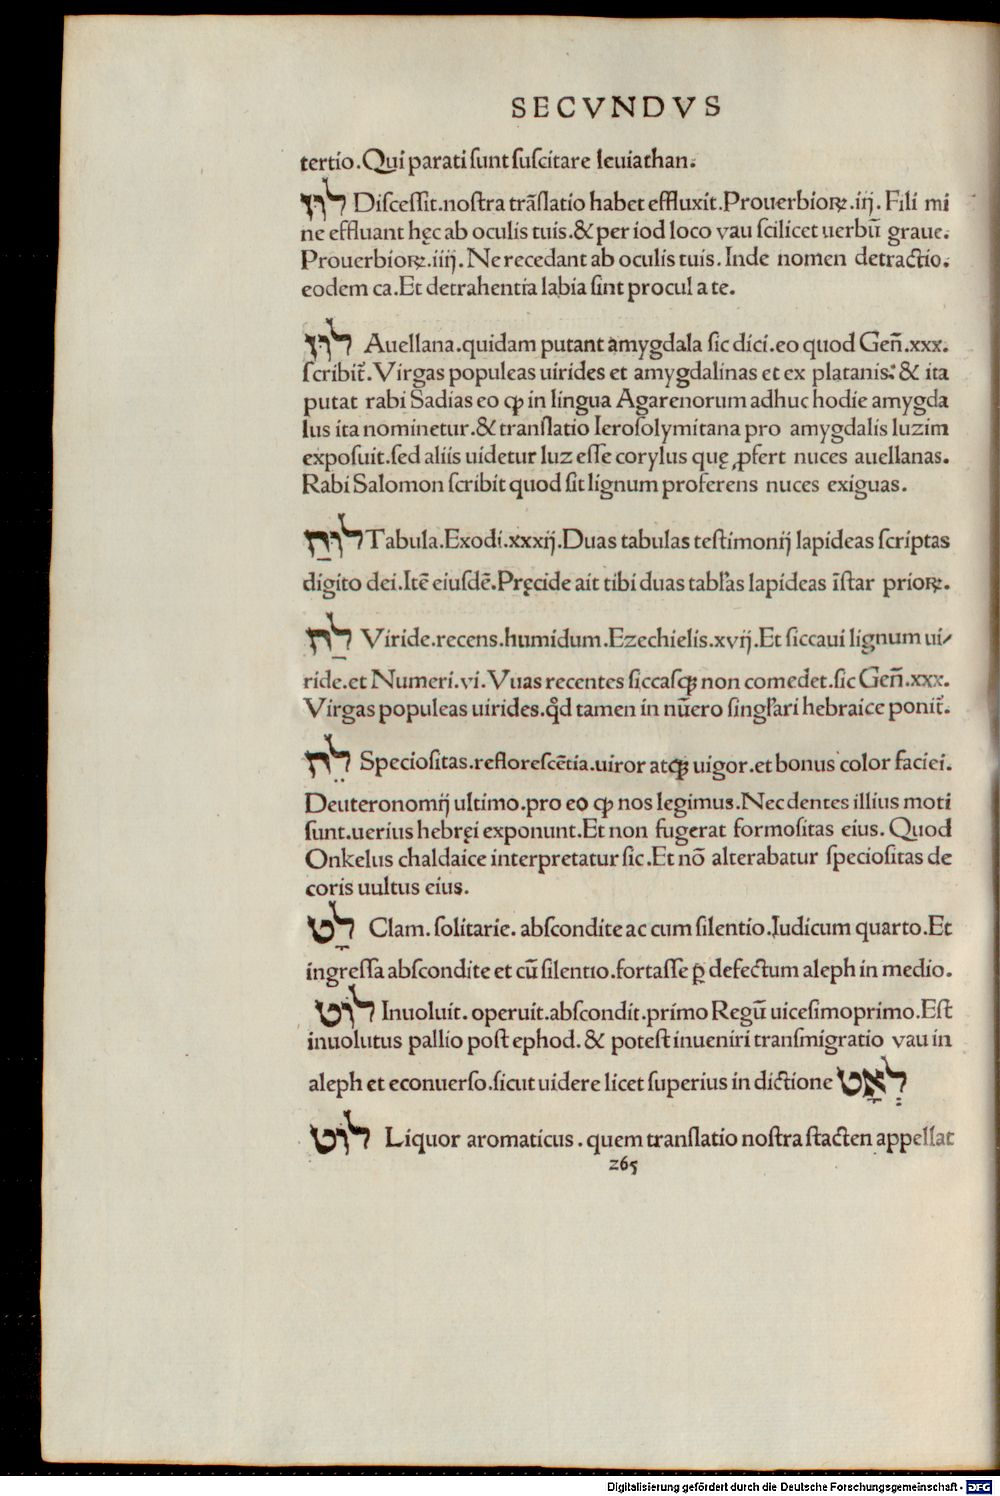 SECVNDVS
tertio.Qui parati sunt suscitare leuiathan.
לוז Discessit.nostra trāslatio habet effluxit.Prouerbioꝝ.iij. Fili mi
ne effluant hęc ab oculis tuis.&per iod loco vau scilicet uerbū graue.
Prouerbioꝝ.iiij. Ne recedant ab oculis tuis. Inde nomen detractio.
eodem ca.Et detrahentia labia sint procul a te.
לוּז Auellana.quidam putant amygdala sic dici.eo quod Geñ.xxx.
scribit̃.Virgas populeas uirides et amygdalinas et ex platanis:& ita
putat rabi Sadias eo ꝙ in lingua Agarenorum adhuc hodie amygda
lus ita nominetur.& translatio Ierosolymitana pro amygdalis luzim
exposuit.sed aliis uidetur luz esse corylus quę ꝓfert nuces auellanas.
Rabi Salomon scribit quod sit lignum proferens nuces exiguas.
לוּחַ Tabula.Exodi.xxxij.Duas tabulas testimonij lapideas scriptas
digito dei.Itē eiusdē.Pręcide ait tibi duas tabl̃as lapideas īstar prioꝝ.
לַח Viride.recens.humidum.Ezechielis.xvij.Et siccaui lignum ui/
ride.et Numeri.vi.Vuas recentes siccasqꝫ non comedet.sic Geñ.xxx.
Virgas populeas uirides.qd̃ tamen in nūero singl̃ari hebraice ponit̃.
לֵח Speciositas.reflorescētia.uiror atqꝫ uigor.et bonus color faciei.
Deuteronomij ultimo.pro eo ꝙ nos legimus.Nec dentes illius moti
sunt.uerius hebręi exponunt.Et non fugerat formositas eius. Quod
Onkelus chaldaice interpretatur sic.Et nō alterabatur speciositas de
coris uultus eius.
לָט Clam. solitarie. abscondite ac cum silentio.Iudicum quarto.Et
ingressa abscondite et cū silentio.fortasse ꝑ defectum aleph in medio.
לוט Inuoluit. operuit.abscondit.primo Regū uicesimoprimo.Est
inuolutus pallio post ephod. & potest inueniri transmigratio vau in
aleph et econuerso.sicut uidere licet superius in dictione לְאָט
לוֹט Liquor aromaticus . quem translatio nostra stacten appellat
265
Digitalisierung gefördert durch die Deutsche Forschungsgemeinschaft - DFG